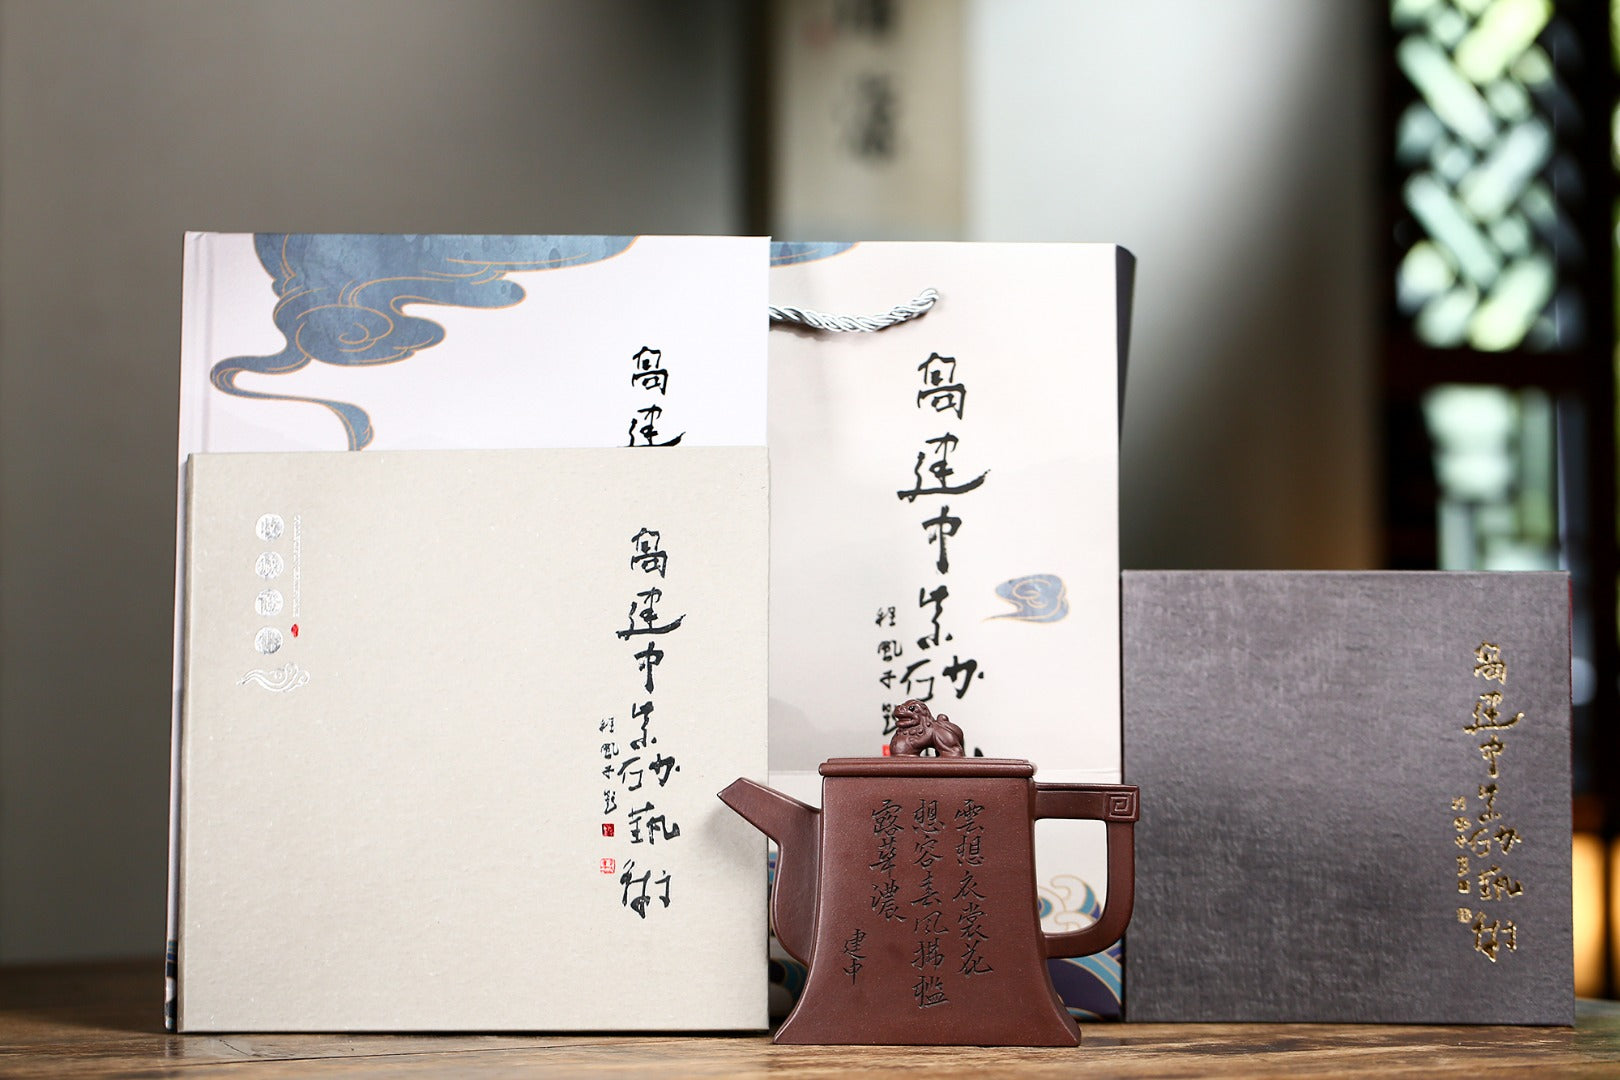 高建
高建中紫砂藝術
程風子題
高建中紫砂
程風子題
雲想衣裳花
想容春風拂檻
露華濃
建中
高建中紫砂藝術